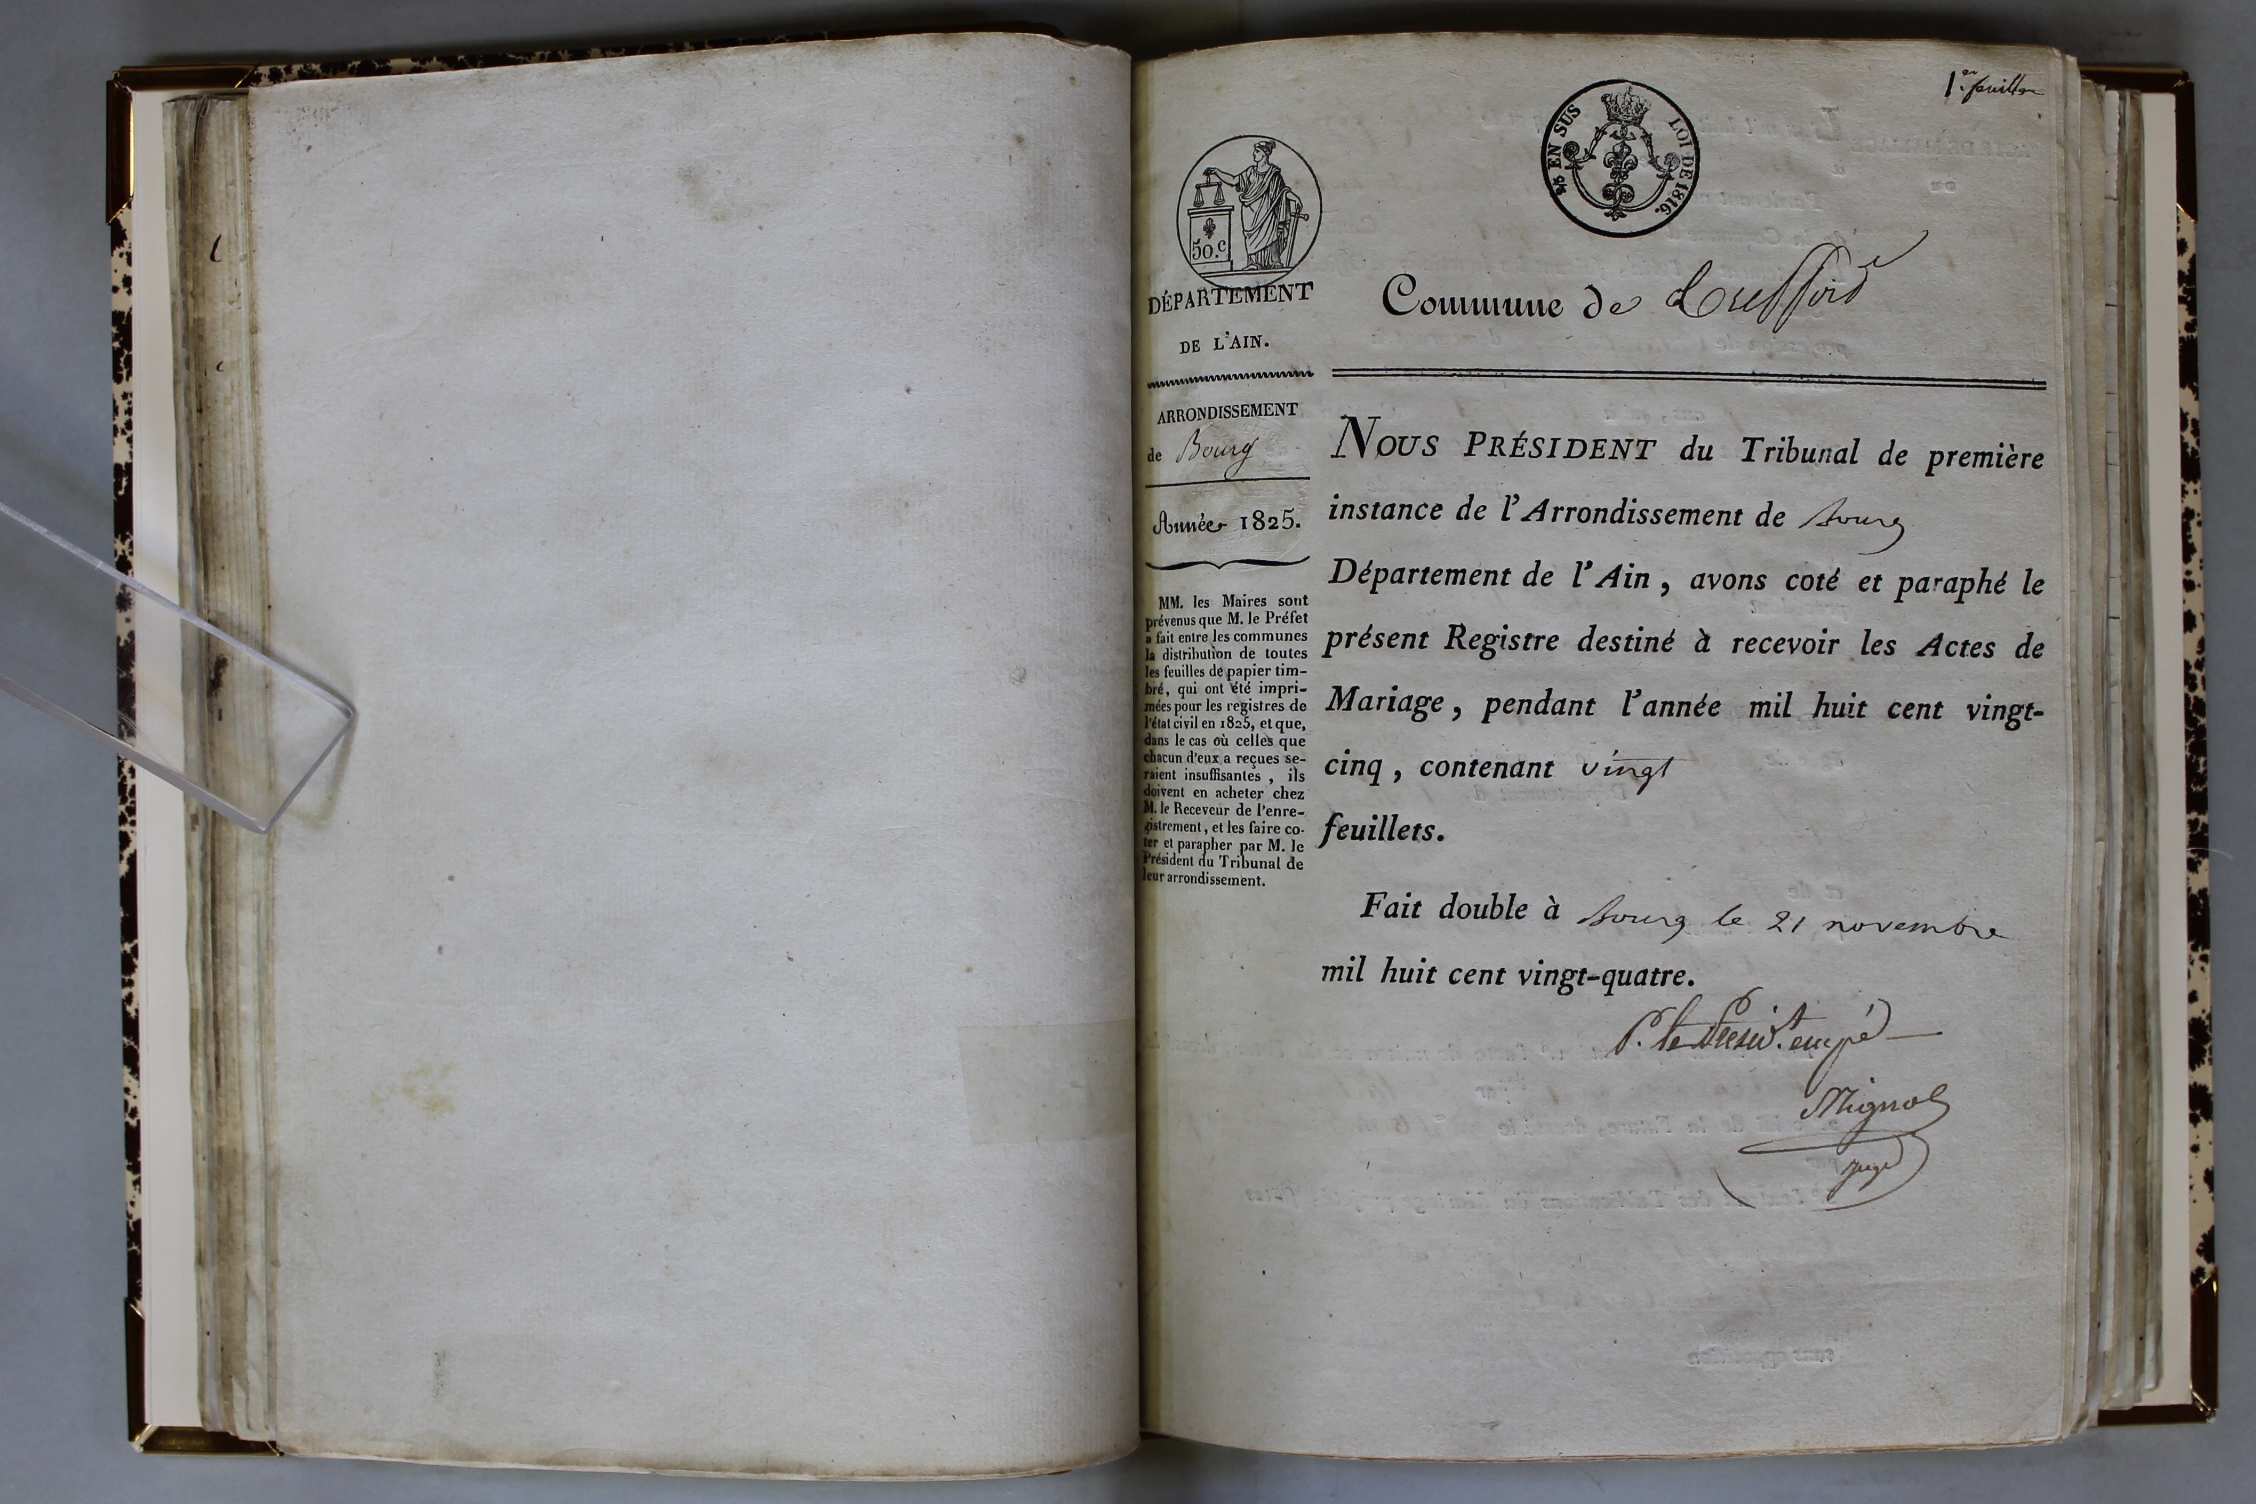 1er feuillet
¼ EN SUS
LOI DE 1816.
50.c
DÉPARTEMENT
DE L'AIN.
Commune de Treffort
ARRONDISSEMENT
de Bourg
Année 1825.
MM. les Maires sont
prévenus que M. le Préfet
a fait entre les communes
la distribution de toutes
les feuilles de papier tim-
bré, qui ont été impri-
mées pour les registres de
l'état civil en 1825, et que,
dans le cas où celles que
chacun d'eux a reçues se-
raient insuffisantes, ils
doivent en acheter chez
M. le Receveur de l'enre-
gistrement, et les faire co-
ter et parapher par M. le
Président du Tribunal de
leur arrondissement.
NOUS PRÉSIDENT du Tribunal de première
instance de l'Arrondissement de Bourg
Département de l'Ain, avons coté et paraphé le
présent Registre destiné à recevoir les Actes de
Mariage, pendant l'année mil huit cent vingt-
cinq, contenant vingt
feuillets.
Fait double à Bourg le 21 novembre
mil huit cent vingt-quatre.
P. le Présid.t empé
Mignot
juge